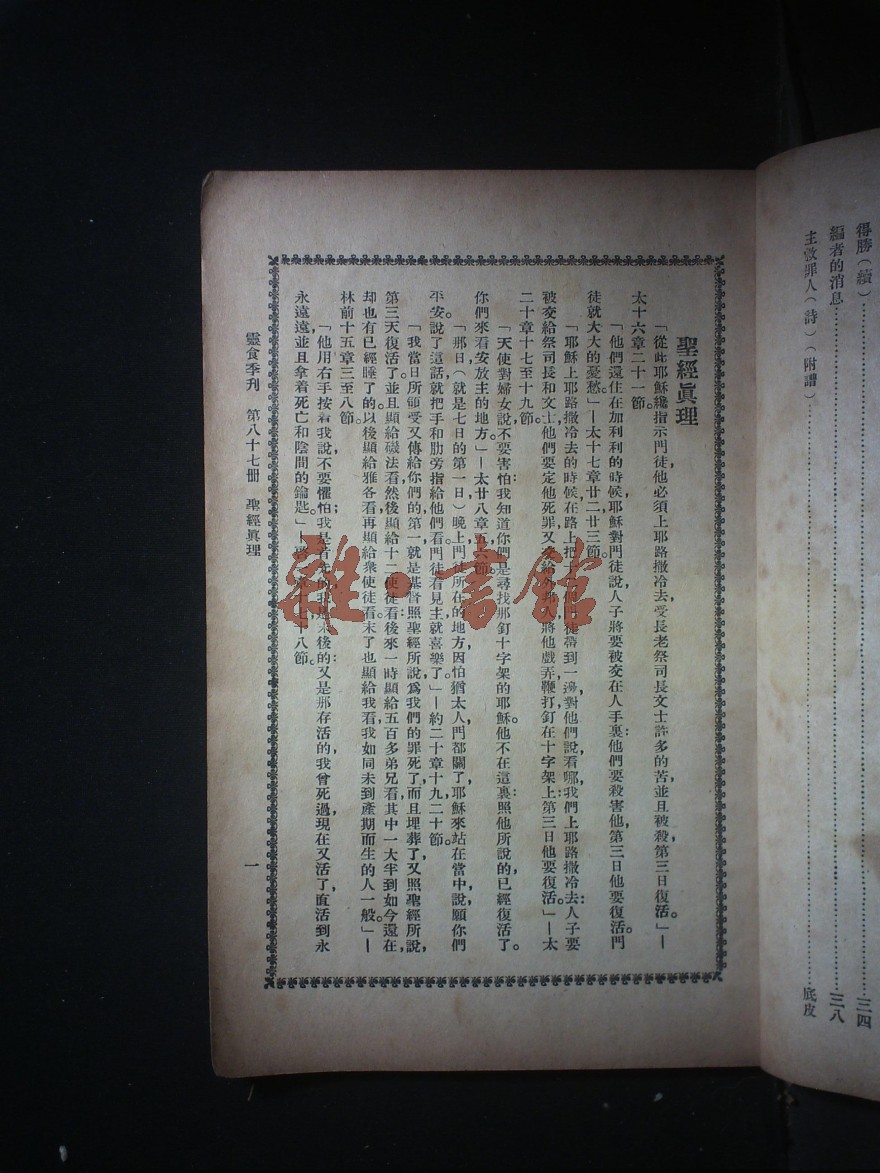 得勝(續)……三四
編者的消息……三八
主救罪人(詩)(附譜)……底皮
聖經眞理
「從此耶穌纔指示門徒他必須上耶路撒冷去,受長老祭司長文士許多的苦,並且被殺,第三日復活。」—
太十六章二十一節。
「他們還住在加利利的時候,耶穌對門徒說,人子將要被交在人手裏。他們要殺害他,第三日他要復活。門
徒就大大的憂愁。」—太十七章廿二廿三節。
「耶穌上耶路撒冷去的時候,在路上把十二門徒帶到一邊,對他們說,看哪,我們上耶路撒冷去,人子要
被交給祭司長和文士。他們要定他死罪,又交給外邦人,將他戲弄,鞭打,釘在十字架上;第三日他要復活。」—太
二十章十七至十九節。
「天使對婦女說,不要害怕,我知道你們是尋找那釘十字架的耶穌。他不在這裏,照他所說的,已經復活了。
你們來看安放主的地方。」—太廿八章五六節。
「那日(就是七日的第一日)晚上,門徒所在的地方,因怕猶太人,門都關了。耶穌來站在當中,說,願你們
平安。說了這話,就把手和肋旁指給他們看。門徒看見主,就喜樂了。」—約二十章十九二十節。
「我當日所領受又傳給你們的,第一就是基督照聖經所說,爲我們的罪死了,而且埋葬了,又照聖經所說,
第三天復活了。並且顯給磯法看,然後顯給十二使徒看;後來一時顯給五百多弟兄看,其中一大半到如今還在,
却也有已經睡了的。以後顯給雅各看,再顯給衆使徒看。末了也顯給我看,我如同未到產期而生的人一般。」—
林前十五章三至八節。
「他用右手按着我說,不要懼怕;我是首先的,我是末後的,又是那存活的。我曾死過,現在又活了,直活到永
永遠遠;並且拿着死亡和陰間的鑰匙。」—啓一章十七十八節。
靈食季刊 第八十七册 聖經眞理 一
雜·書館